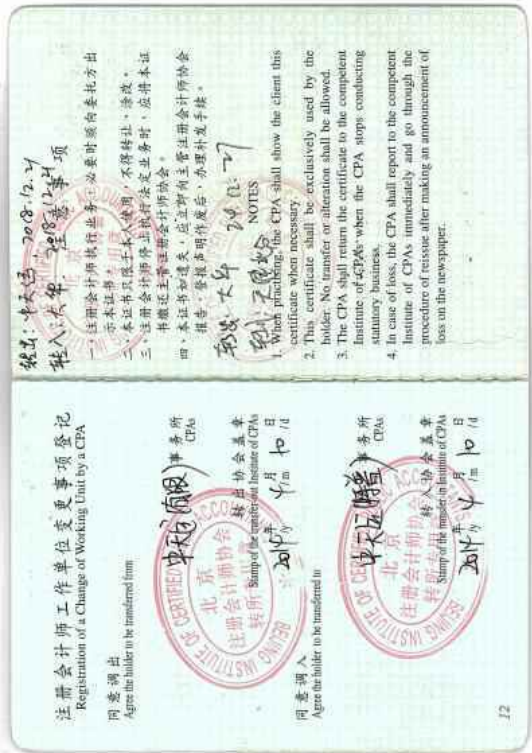 注册会计师工作单位变更事项登记
Registration of a Change of Working Unit by a CPA
同意调出
Agree the holder to be transferred from
事务所
CPAs
转出协会盖章
Stamp of the transfer-out Institute of CPAs
2014年 4月 10日
/y /m /d
BEIJING INSTITUTE OF CERTIFIED
北京
注册会计师协会
同意调入
Agree the holder to be transferred to
事务所
CPAs
转入协会盖章
Stamp of the transfer-in Institute of CPAs
2014年 4月 10日
/y /m /d
BEIJING INSTITUTE OF CER
北京
注册会计师协会
12
转出: 中天运 2018.12.21
转入: 大华 2018.12.21
注意事项
一、注册会计师执行业务,必要时须向委托方出
示本证书。
二、本证书只限于本人使用,不得转让、涂改。
三、注册会计师停止执行法定业务时,应将本证
书缴还主管注册会计师协会。
四、本证书如遗失,应立即向主管注册会计师协会
报告,登报声明作废后,办理补发手续。
NOTES
1. When practising, the CPA shall show the client this
certificate when necessary.
2. This certificate shall be exclusively used by the
holder. No transfer or alteration shall be allowed.
3. The CPA shall return the certificate to the competent
Institute of CPAs when the CPA stops conducting
statutory business.
4. In case of loss, the CPA shall report to the competent
Institute of CPAs immediately and go through the
procedure of reissue after making an announcement of
loss on the newspaper.